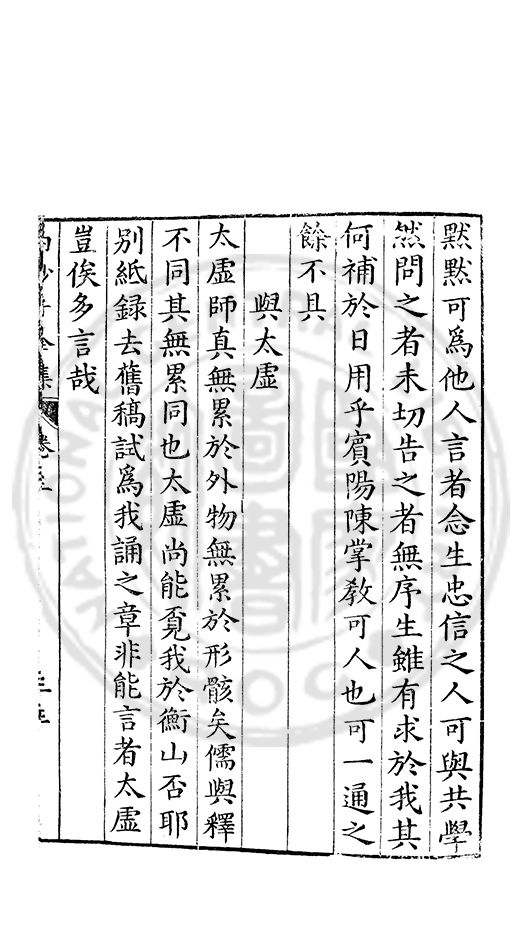 默默可爲他人言者念生忠信之人可與共學
然問之者未切告之者無序生雖有求於我其
何補於日用乎賓陽陳掌教可人也可一通之
餘不具
與太虛
太虛師真無累於外物無累於形骸矣儒與釋
不同其無累同也太虛尚能覓我於衡山否耶
別紙録去舊稿試爲我誦之章非能言者太虛
豈俟多言哉
全集 卷三